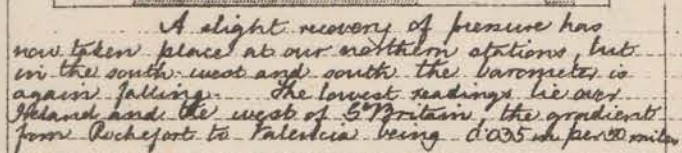 A slight recovery of pressure has
now taken place at our northern stations, but
in the south-west and south the barometer is
again falling. The lowest readings lie over
Ireland and the west of Gt Britain, the gradient
from Rochefort to Valencia being 0.035 in per 50 miles